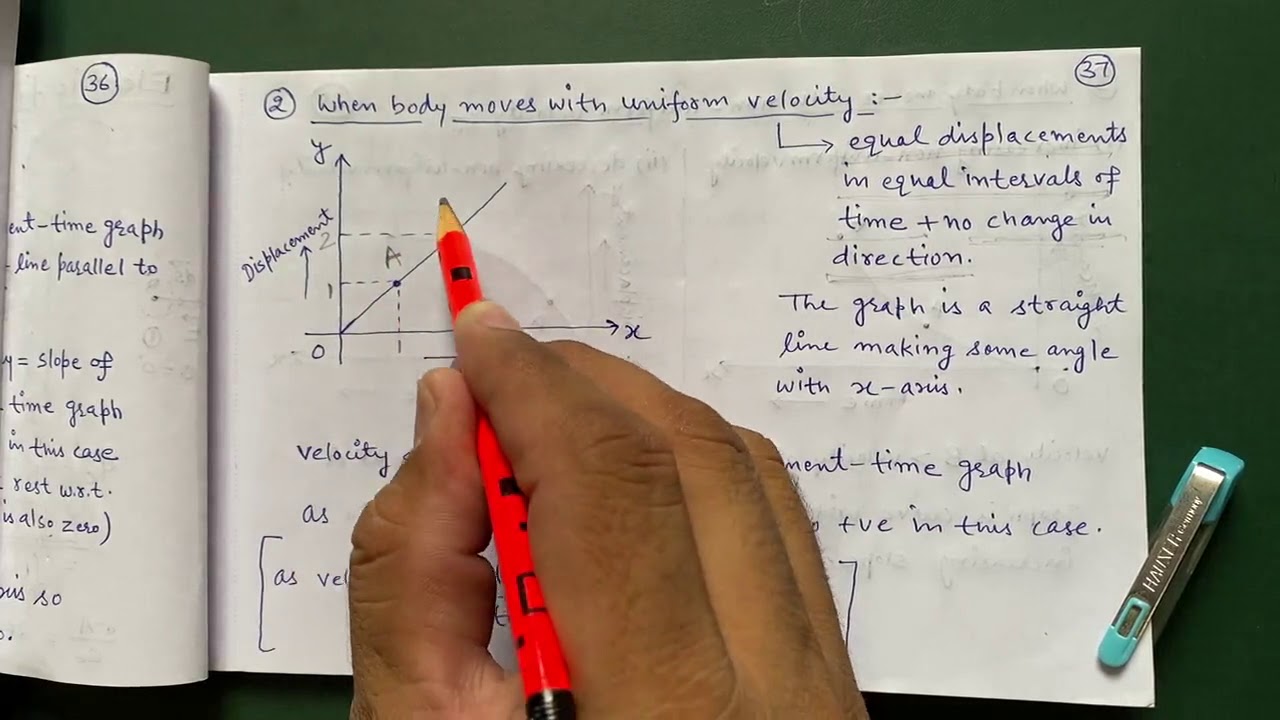 36
ent-time graph
line parallel to
y = slope of
time graph
in this case
rest w.r.t.
is also zero)
so
37
② When body moves with uniform velocity :-
↳ equal displacements
in equal intervals of
time + no change in
direction.
The graph is a straight
line making some angle
with x-axis.
y
Displacement
2
A
1
0
x
velocity
ment-time graph
as
+ve in this case.
as vel
HAUSER Germany